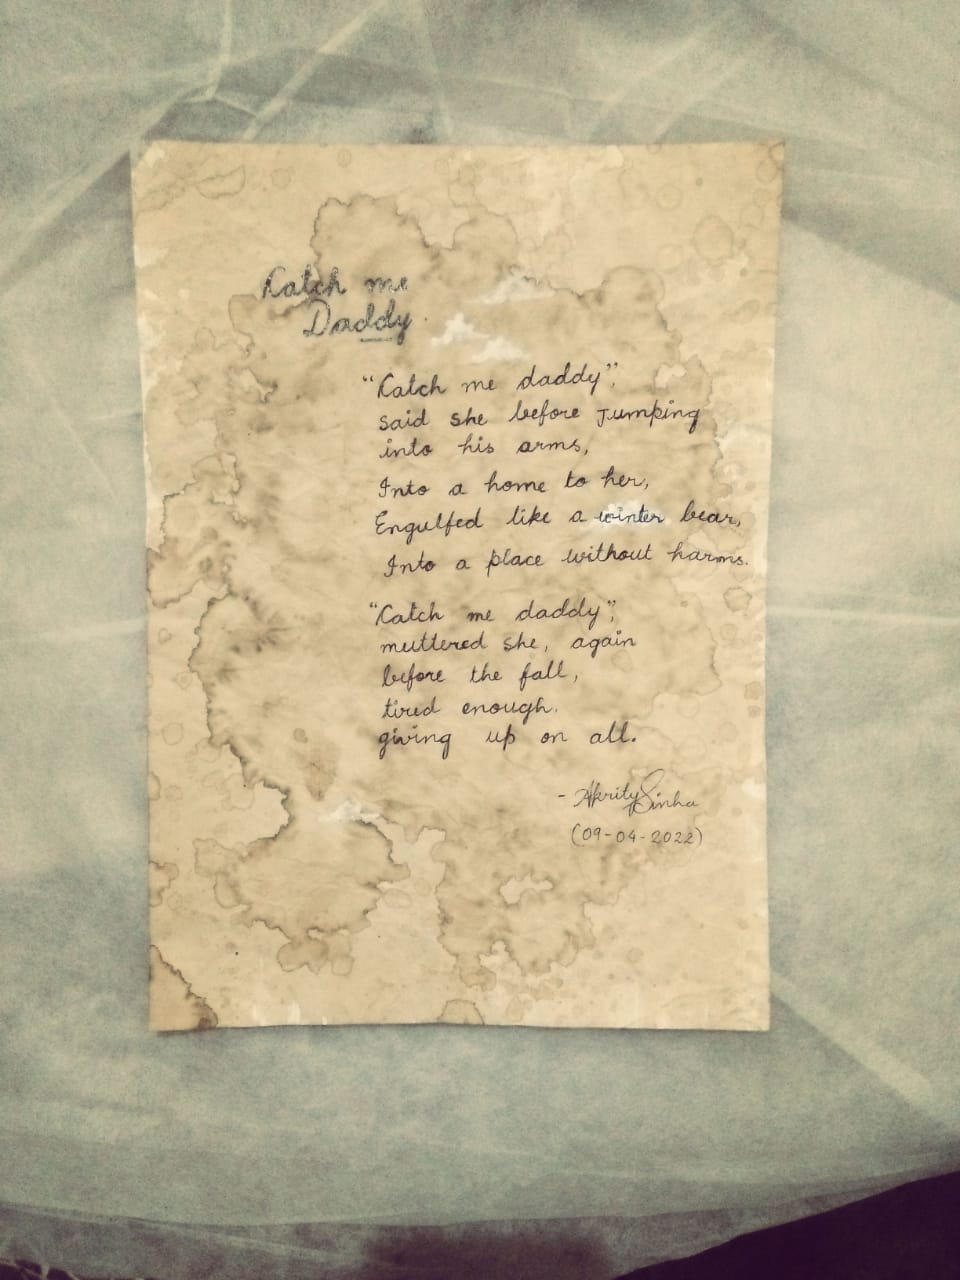 Catch me
Daddy
"Catch me daddy",
said she before Jumping
into his arms,
Into a home to her,
Engulfed like a winter bear,
Into a place without harms.
"Catch me daddy",
muttered she, again
before the fall,
tired enough.
giving up on all.
- Akrity Sinha
(09-04-2022)